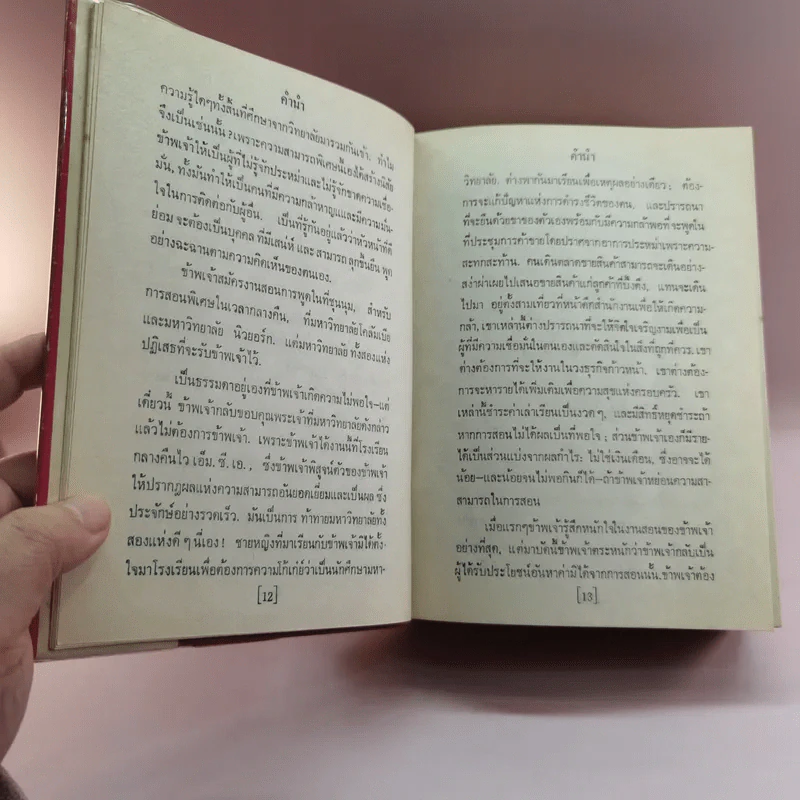 คำนำ
ความรู้ใดๆทั้งสิ้นที่ศึกษาจากวิทยาลัยมารวมกันเข้า. ทำไม
จึงเป็นเช่นนั้น ?เพราะความสามารถพิเศษนี้เองได้สร้างนิสัย
ข้าพเจ้าให้เป็นผู้ที่ไม่รู้จักประหม่าและไม่รู้จักขาดความเชื่อ-
มั่น, ทั้งมันทำให้เป็นคนที่มีความกล้าหาญและมีความมั่น-
ใจในการติดต่อกับผู้อื่น. เป็นที่รู้กันอยู่แล้วว่าหัวหน้าที่ดี
ย่อม จะต้องเป็นบุคคล ที่มีเสน่ห์ และ สามารถ ลุกขึ้นยืน พูด
อย่างฉะฉานตามความคิดเห็นของตนเอง.
ข้าพเจ้าสมัครงานสอนการพูดในที่ชุมนุม, สำหรับ
การสอนพิเศษในเวลากลางคืน, ที่มหาวิทยาลัยโคลัมเบีย
และมหาวิทยาลัย นิวยอร์ก. แต่มหาวิทยาลัย ทั้งสองแห่ง
ปฏิเสธที่จะรับข้าพเจ้าไว้.
เป็นธรรมดาอยู่เองที่ข้าพเจ้าเกิดความไม่พอใจ—แต่
เดี๋ยวนี้ ข้าพเจ้ากลับขอบคุณพระเจ้าที่มหาวิทยาลัยดังกล่าว
แล้วไม่ต้องการข้าพเจ้า. เพราะข้าพเจ้าได้งานนี้ที่โรงเรียน
กลางคืนไว เอ็ม. ซี. เอ., ซึ่งข้าพเจ้าพิสูจน์ตัวของข้าพเจ้า
ให้ปรากฏผลแห่งความสามารถอันยอดเยี่ยมและเป็นผล ซึ่ง
ประจักษ์อย่างรวดเร็ว. มันเป็นการ ท้าทายมหาวิทยาลัยทั้ง
สองแห่งดีๆนี่เอง! ชายหญิงที่มาเรียนกับข้าพเจ้ามิได้ตั้ง-
ใจมาโรงเรียนเพื่อต้องการความโก้เก๋ว่าเป็นนักศึกษามหา-
[12]
คำนำ
วิทยาลัย. ต่างพากันมาเรียนเพื่อเหตุผลอย่างเดียว: ต้อง-
การจะแก้ปัญหาแห่งการดำรงชีวิตของตน, และปรารถนา
ที่จะยืนด้วยขาของตัวเองพร้อมกับมีความกล้าพอที่ จะพูดใน
ที่ประชุมการค้าขายโดยปราศจากอาการประหม่าเพราะความ-
สะทกสะท้าน. คนเดินตลาดขายสินค้าสามารถจะเดินอย่าง-
สง่าผ่าเผยไปเสนอขายสินค้าแก่ลูกค้าที่บึ้งตึง, แทนจะเดิน
ไปมา อยู่ตั้งสามเที่ยวที่หน้าตึกสำนักงานเพื่อให้เกิดความ-
กล้า, เขาเหล่านี้ต่างปรารถนาที่จะให้จิตใจเจริญงามเพื่อเป็น
ผู้ที่มีความเชื่อมั่นในตนเองและตัดสินใจในสิ่งที่ถูกที่ควร. เขา
ต่างต้องการที่จะให้งานในวงธุรกิจก้าวหน้า. เขาต่างต้อง-
การจะหารายได้เพิ่มเติมเพื่อความสุขแห่งครอบครัว. เขา
เหล่านี้ชำระค่าเล่าเรียนเป็นงวดๆ, และมีสิทธิ์หยุดชำระถ้า
หากการสอนไม่ได้ผลเป็นที่พอใจ; ส่วนข้าพเจ้าเองก็มีราย-
ได้เป็นส่วนแบ่งจากผลกำไร: ไม่ใช่เงินเดือน, ซึ่งอาจจะได้
น้อย—และน้อยจนไม่พอกินก็ได้—ถ้าข้าพเจ้าหย่อนความสา-
สามารถในการสอน
เมื่อแรกๆข้าพเจ้ารู้สึกหนักใจในงานสอนของข้าพเจ้า
อย่างที่สุด, แต่มาบัดนี้ข้าพเจ้าตระหนักว่าข้าพเจ้ากลับเป็น
ผู้ได้รับประโยชน์อันหาค่ามิได้จากการสอนนั้น.ข้าพเจ้าต้อง
[13]